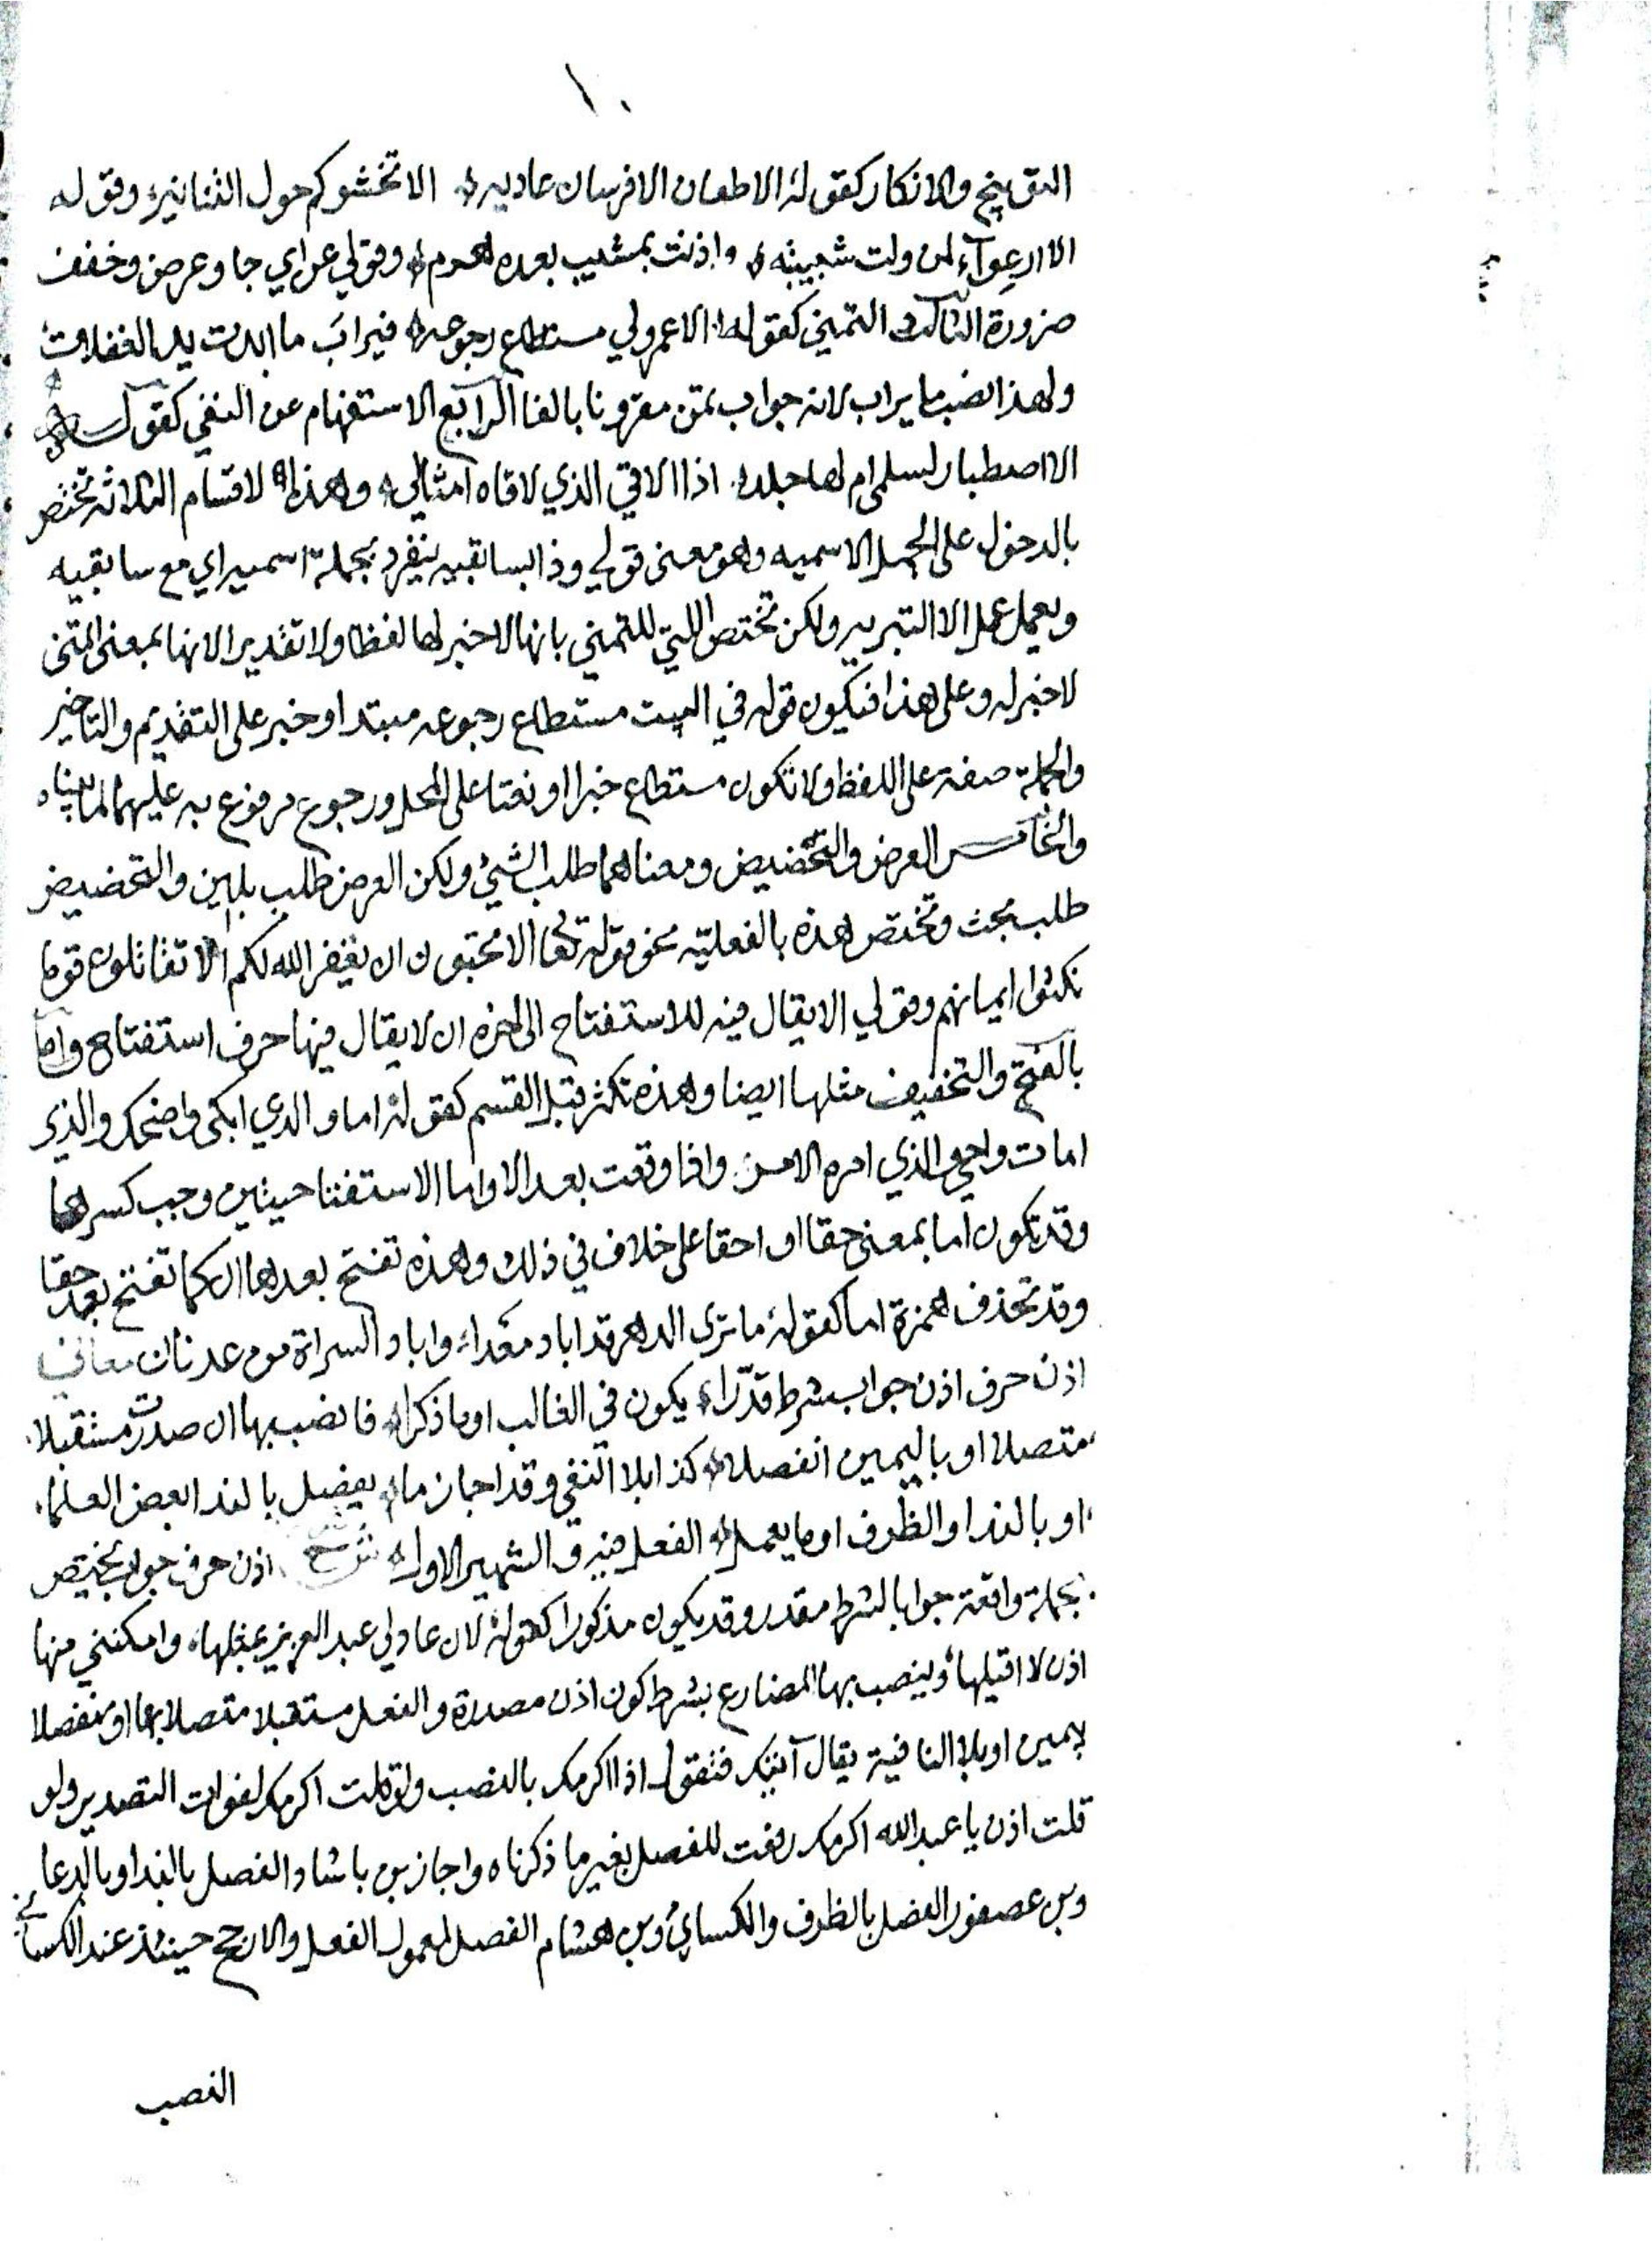 ١٠
التوبيخ والانكار كقوله الاطعان الافرسان عاديه الا تخشوكم حول التنانير وقوله
الا ارعوآء لمن ولت شبيبته واذنت بمشيب بعده هرم وقولي عراي جا وعرض وخفف
ضرورة الثالث التمني كقوله الا عمر ولي مستطاع رجوعه فيرأب ما اثات يد الغفلات
ولهذا نصب يراب لانه جواب تمن مقرونا بالفا الرابع الاستفهام عن النفي كقوله
الا اصطبار لسلمى ام لها جلد اذا الاقي الذي لاقاه امثالي وهذه الاقسام الثلاثه تختص
بالدخول على الجمله الاسميه وهو معنى قولي وذا بسابقيه ينفرد بجملة اسميه اي مع سابقيه
ويعمل عمل لا التبريه ولكن تختص التي للتمني بانها لا خبر لها لفظا ولا تقديرا لانها بمعنى اتمنى
لا خبر له وعلى هذا فيكون قوله في البيت مستطاع رجوعه مبتدا وخبر على التقديم والتاخير
والجملة صفة على اللفظ ولا تكون مستطاع خبرا او نعتا على المحل ورجوع مرفوع به عليهما لما بيناه
والخامس العرض والتحضيض ومعناهما طلب الشيئ ولكن العرض طلب بلين والتحضيض
طلب بحث وتختص هذه بالفعليّه نحو قوله تعا الا تحبون ان يغفر الله لكم الا تقاتلون قوما
نكثوا ايمانهم وقولي الا يقال فيه للاستفتاح الى اخره ان لا يقال فيها حرف استفتاح واما
بالفتح والتخفيف مثلها ايضا وهذه تكثر قبل القسم كقوله اما والذي ابكى واضحك والذي
امات واحي والذي امره الامر واذا وقعت بعد الا واما الاستفتاحيتين وجب كسرها
وقد تكون اما بمعنى حقا او احقا على خلاف في ذلك وهذه تفتح بعدها ان كما تفتح بعد حقا
وقد تحذف همزة اما كقوله ما ترى الدهر قد اباد معدا واباد السراة من عدنان معاني
اذن حرف اذن جواب بشرط قدّرا يكون في الغالب او ما ذكرا فانصب بها ان صدرت مستقبلا
متصلا او باليمين انفصلا كذا بلا النفي وقد اجاز ما يفصل بالندا بعض العلما
او بالندا والظرف او ما يعمل الفعل فيه والشهير الاول شرح اذن حرف جواب يختص
بجملة واقعة جوابا لشرط مقدر وقد يكون مذكورا كقوله لان عاد لي عبد العزيز بمثلها وامكنني منها
اذن لا اقيلها وينصب بها المضارع بشرط كون اذن مصدرة والفعل مستقبلا متصلا بها او منفصلا
بيمين او بلا النافية يقال آتيك فتقول اذا اكرمك بالنصب ولو قلت اكرمك لفوات التصدير ولو
قلت اذن يا عبد الله اكرمك رفعت للفصل بغير ما ذكرناه واجاز بن بابشاد الفصل بالندا وبالدعا
وبن عصفور الفصل بالظرف والكسائي وبن هشام الفصل بمعمول الفعل والارجح حينئذ عند الكسائي
النصب